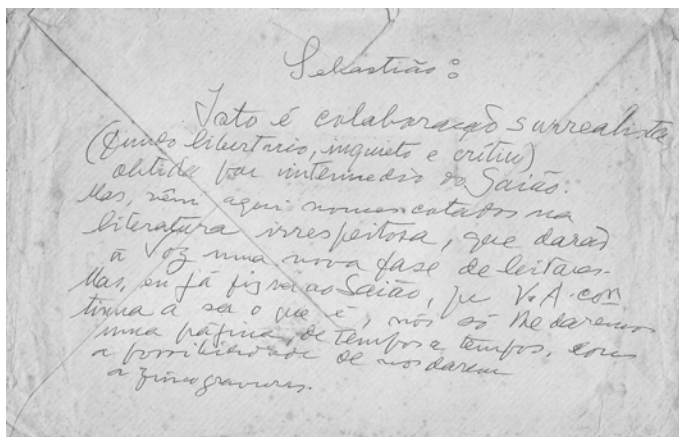 Sebastião:
Isto é colaboração surrealista
(Cunho libertario, inquieto e critico)
obtida por intermedio do Saião.
Mas, vêm aqui nomes cotados na
literatura irrespeitosa, que darão
à Voz uma nova fase de leitores.
Mas, eu já fiz ver ao Saião, que V.A. con
tinua a ser o que é, nós só lhe daremos
uma página, de tempos a tempos, com
a possibilidade de nos darem
a zincogravuras.